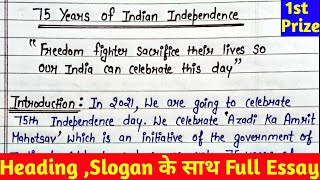 75 Years of Indian Independence
1st
Prize
"Freedom fighter sacrifice their lives so
our India can celebrate this day"
Introduction: In 2021, We are going to celebrate
75th Independence day. We celebrate 'Azadi Ka Amrit
Mahotsav' which is an initiative of the government of
Heading ,Slogan के साथ Full Essay